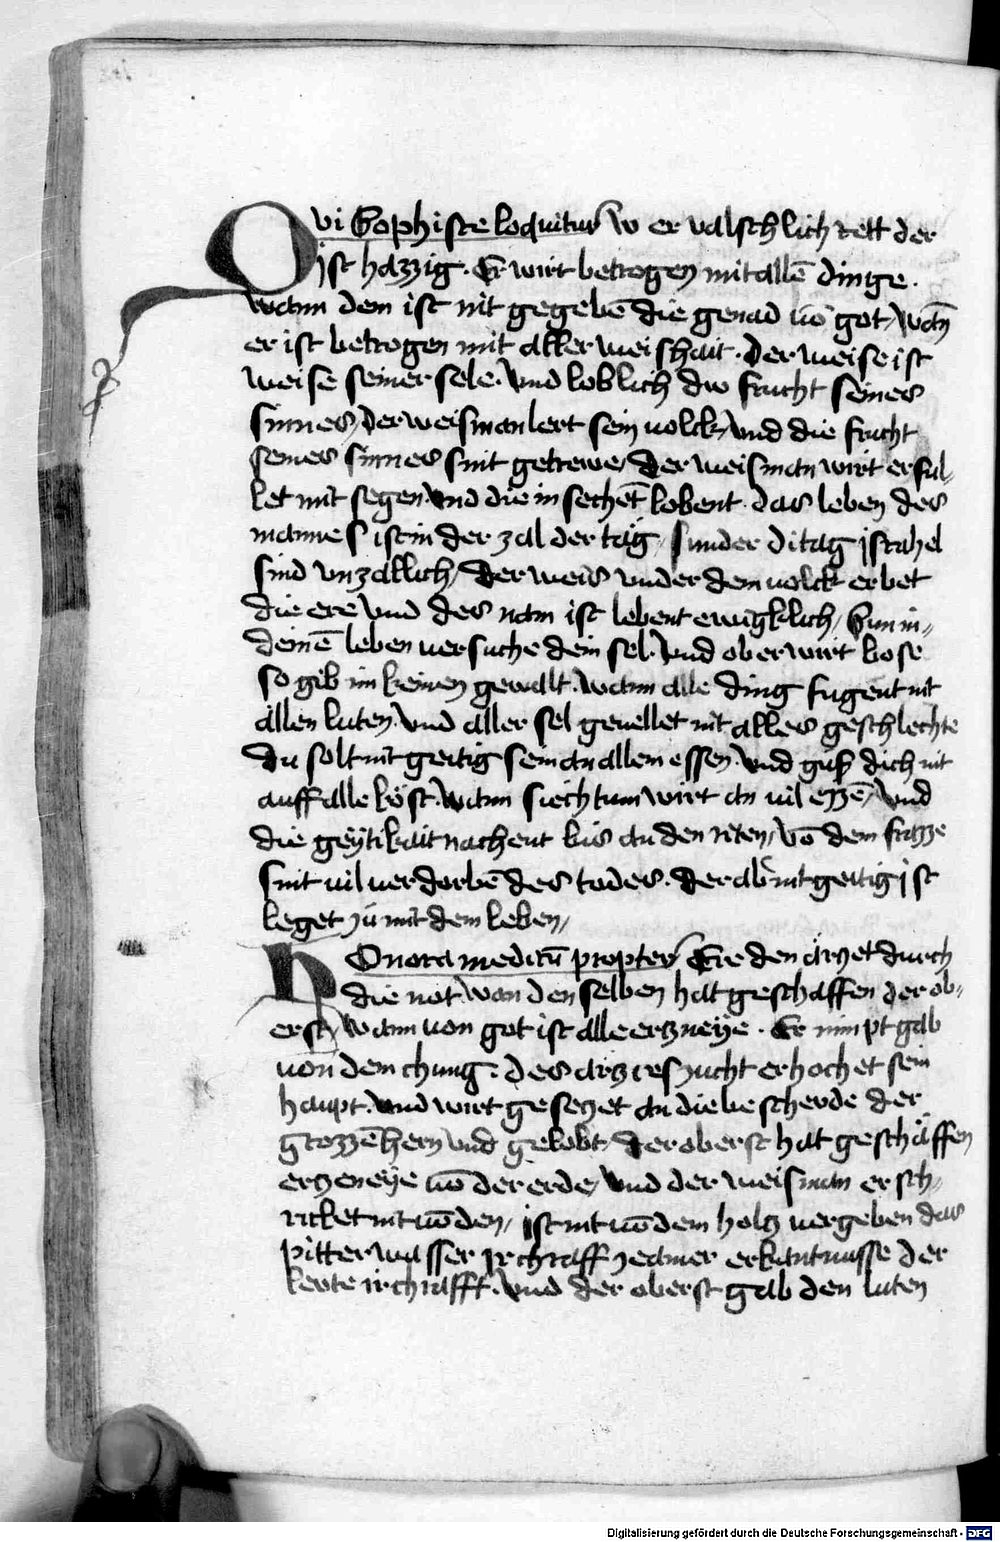 Qvi Sophistice loquitur w er valschlich rett der
ist hazzig. Er wirt betrogen mit allē dinge.
wann dem ist nit gegebē die genad uō got, wān
er ist betrogen mit aller weishait. der weise ist
weise seiner sele. Und loblich div frucht seines
sinnes, der weisman lert sein uolck, und die frucht
seines sinnes sint getrewe, Der weisman wirt erful-
let mit segen und die in sechēt lobent. das leben des
mannes ist in der zal der tag, sunder di tag israhel
sind unzallich, Der weis under dem uolck erbet
die ere und des nam ist lebent ewigklich, Sun in
deinē leben uersuche dein sel. Und ob er wirt bose
so gib im keinen gewalt. wann alle ding fugent nit
allen luten. und aller sel geuellet nit alles geschlechte
du solt nit geitig sein an allem essen. und guß dich nit
auff alle kost. wann siechtum wirt an uil ezzē, und
die geytikait nachent bis an den riten, vō dem frazze
sint uil uerdorbē des todes. der ab nit geitig ist
leget zu mit dem leben,
Honora medicū propter Ere den arzet durch
die not. wan den selben hat geschaffen der ob-
erst, wann von got ist alle ertzneye. Er nimpt gab
uon dem chunig. des artztes zucht erhochet sein
haupt. und wirt gesetzet an die bescherde der
grozzē hern und gelobt, der oberst hat geschaffen
ertzeneye uō der erde, und der weisman ersch-
ricket nit uō den, ist nit uō dem holtz uergeben das
pitter wasser ir chrafft zeainer erkantnusse der
leute ir chrafft. und der oberst gab den luten
Digitalisierung gefördert durch die Deutsche Forschungsgemeinschaft - DFG